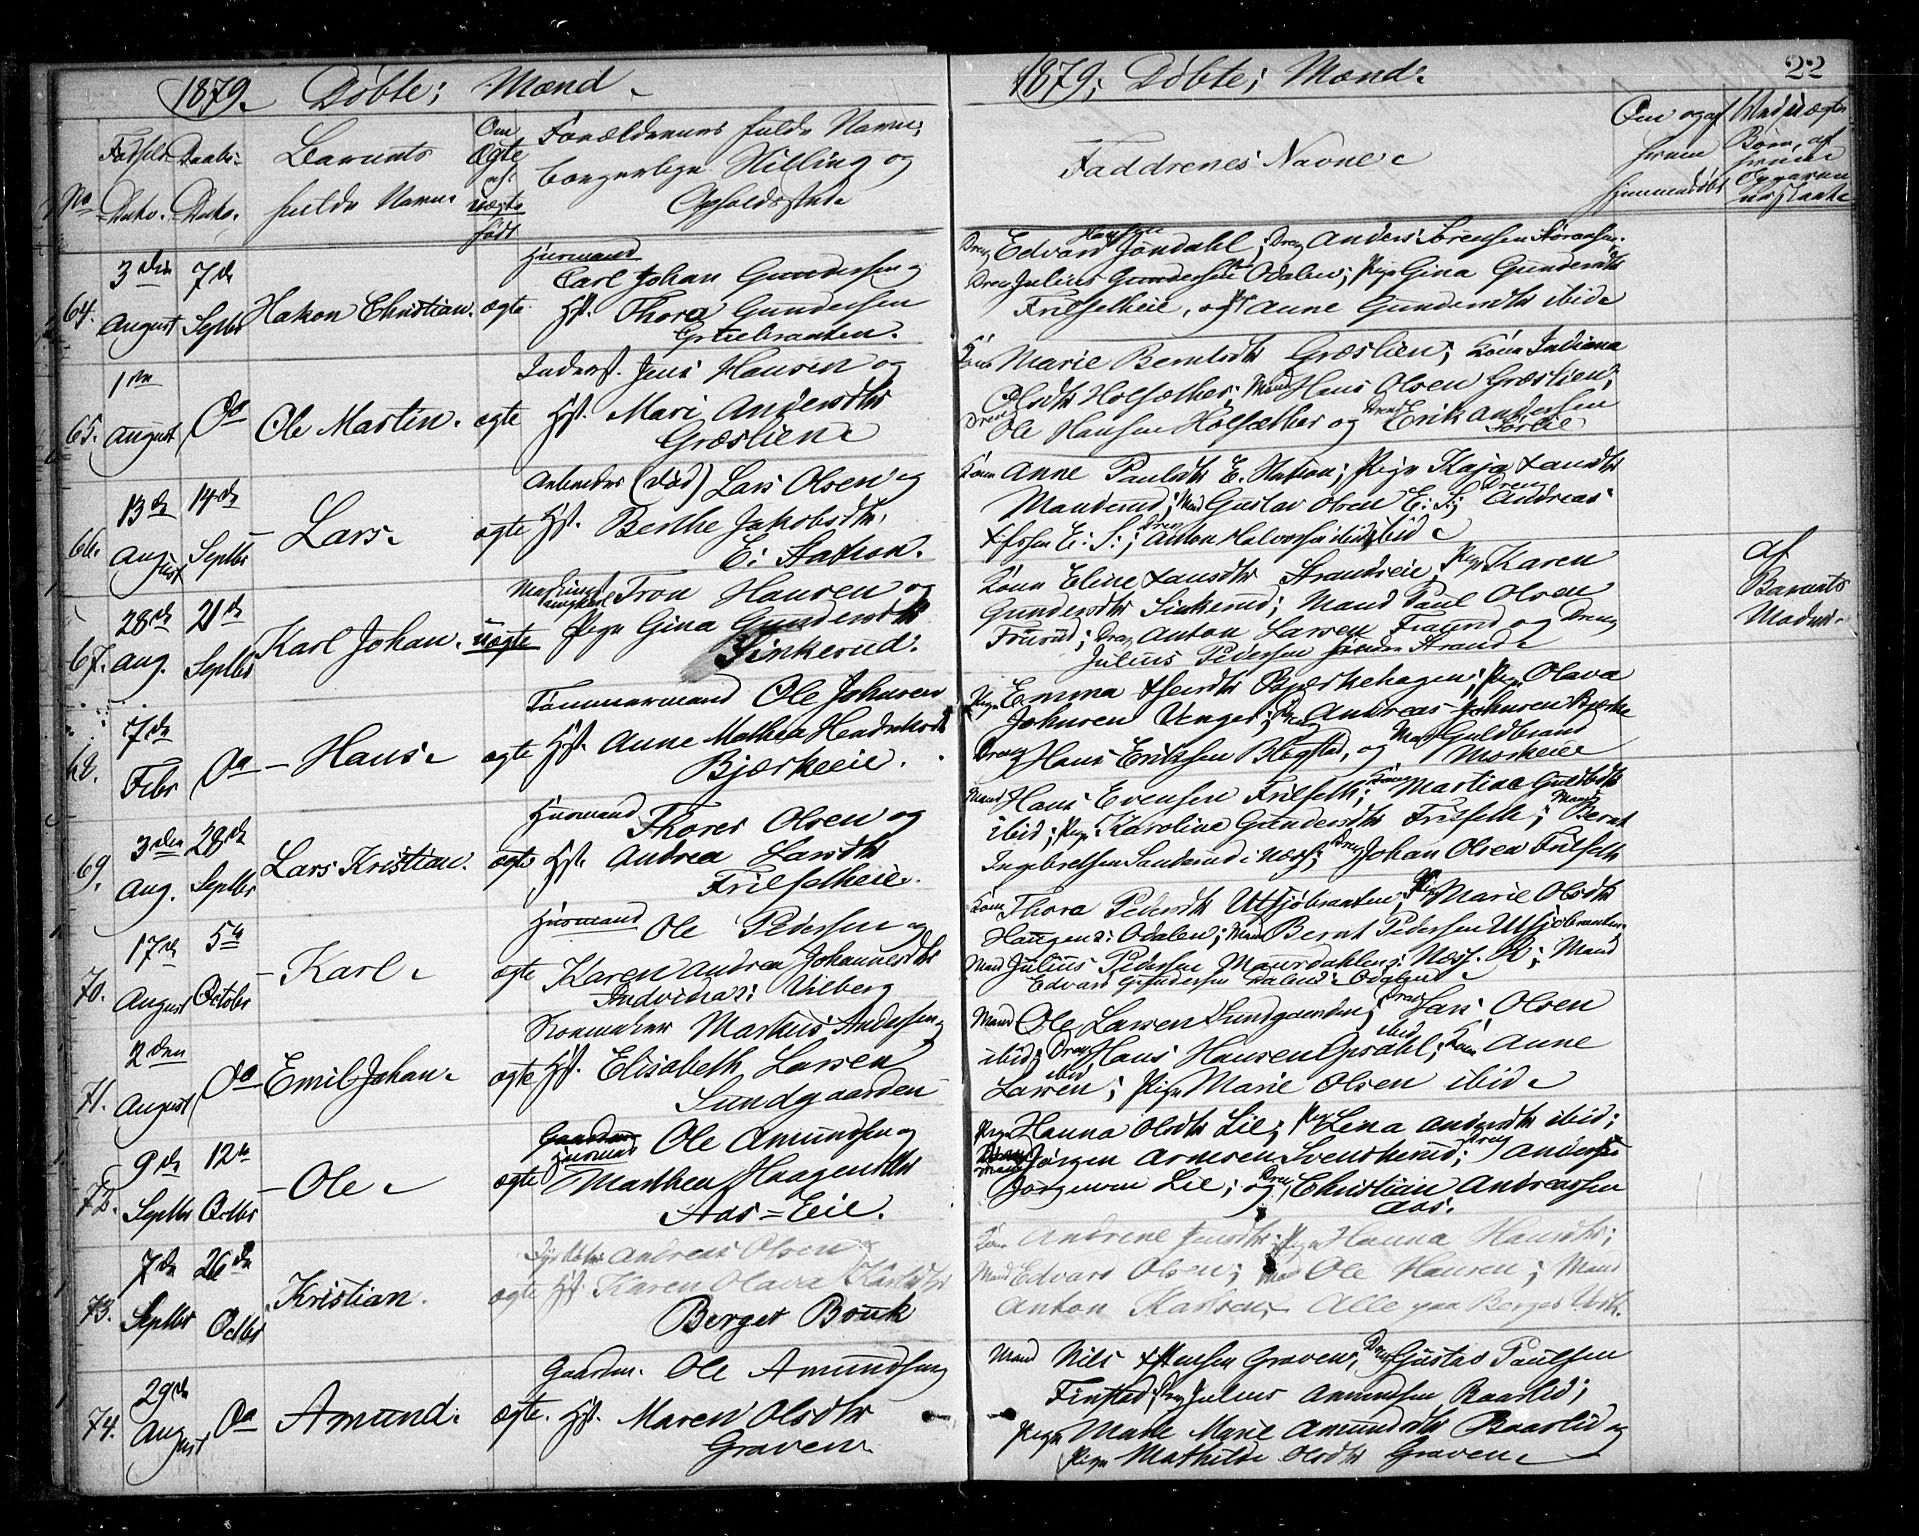 1879. Døbte; Mænd.
No
Fødsels-
Dato.
Daabs-
Dato.
Barnets
fulde Navn.
Om
Ægte
el.
uægte
født
Forældrenes fulde Navn,
borgerlige Stilling og
Opholdssted.
64.
3die
August
7de
Septbr
Hakon Christian.
ægte
Husmand
Carl Johan Gundersen og
Hst. Thora Gundersen
65.
1ste
August
Do
Ole Martin.
ægte
Inderst. Jens Hansen og
Hst. Mari Andersdtr
Græslien.
66.
13de
August
14de
Septbr
Lars.
ægte
Arbeider (død) Lars Olsen og
Hst. Berthe Jakobsdtr,
E. Station.
67.
28de
Aug.
21de
Septbr
Karl Johan.
uægte
Tron Hansen og
Pige Gina Gundersdtr
Sinkerud.
68.
7de
Febr
Do
Hans.
ægte
Tømmermand Ole Johnsen
Hst. Anne Mathea Hendriksdtr
Bjerkeeie.
69.
3die
Aug.
28de
Septbr
Lars Kristian.
ægte
Husmand
Thorer Olsen og
Hst. Andrea Larsdtr
Frilsetheie.
70.
17de
August
5te
Octobr
Karl.
ægte
Husmand
Ole Pedersen og
Karen Andrea Johannesdtr
Vilberg
71.
2den
August
Do
Emil Johan.
ægte
Skomaker Markus Andersen og
Hst. Elisabeth Larsen
Sundgaarden
72.
9de
Septbr
12te
Octbr
Ole.
ægte
Husmand
Ole Amundsen og
Marthea Haagensdtr
Aas-Eie.
73.
7de
Septbr
26de
Octbr
Kristian.
ægte
Andreas Olsen og
Hst. Karen Olava Karlsdtr
Berger Bruk
74.
29de
August
Do
Amund.
ægte.
Gaardm. Ole Amundsen og
Hst. Maren Olsdtr
Graven
1879; Døbte; Mænd.
22
Faddrenes Navne.
Om og af
hvem
hjemmedøbt
Ved Uægte
Børn, af
hvem
Opgaven
Edvard Jondahl; Dreng Anders Sørensen
Dreng Julius Gundersen Odalen; Pige Gina Gundersdtr
Frilsetheie, og Anne Gundersdtr ibid.
Kone Marie Berntsdtr Græslien; Kone Indiana
Olsdtr Holsæther; Mand Hans Olsen Græslien;
Dreng Ole Hansen Holsæther og Dreng Erik Andersen
Sørlie
Kone Anne Paulsdtr E. Station; Pige Kaja
Manderud; Mand Gustav Olsen E. S.; Dreng Andreas
E. S.; Dreng Anton Halvorsen ibid.
Kone Eline Strandseie, Pige Karen
Gundersdtr Sinkerud; Mand Paul Olsen
Dreng Anton Larsen og Dreng
Julius Pedersen Strand.
af
Barnets
Moder.
Pige Emma Bjerkehagen; Pige Olava
Johnsen Unger; Andreas Johnsen Bjerke
Dreng Hans Eriksen Blegstad, og Mand Guldbrand
Morkeeie
Mand Hans Evensen Frilseth; Kone Martine Guldbdtr
ibid; Pige Karoline Gundersdtr Frilseth; Mand Bernt
Ingebretsen Sanderud i Næss; Dreng Johan Olsen Frilseth
Kone Thora Pedersdtr Utsjøbraaten; Pige Marie Olsdtr
Haugen i Odalen; Mand Bernt Pedersen Utsjøbraaten
Mand Julius Pedersen Maurdahlen; Næs. R; Mand
Edvard Gundersen Dalen i Odalen.
Mand Ole Larsen Sundgaarden; Dreng Lars Olsen
ibid; Dreng Hans Hansen Opsahl; Kone Anne
Larsen ibid; Pige Marie Olsen ibid.
Pige Hanna Olsdtr Lie; Pige Lena Andersdtr ibid;
Jørgen Arnesen Svenskerud; Dreng Anders
Jørgensen Lie; og Dreng Christian Andreassen
Aas.
Kone Andrine Jensdtr; Pige Hanna Hansdtr;
Mand Edvard Olsen; Mand Ole Hansen; Mand
Anton Karlsen. Alle paa Berger Brk.
Mand Nils Graven, Dreng Gustav Paulsen
Finstad; Dreng Julius Amundsen Baaslid;
Pige Maren Marie Amundsdtr Baaslid og
Pige Mathilde Olsdtr Graven.